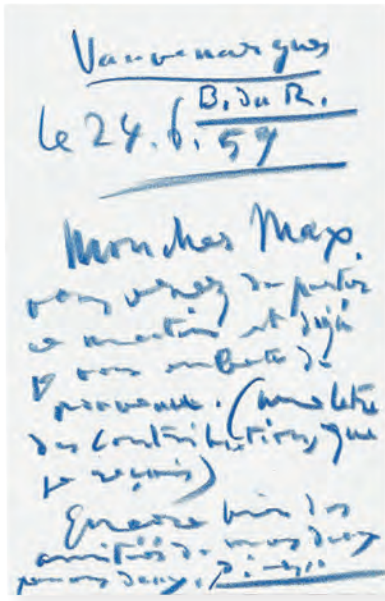 Vauvenargues
B. du R.
le 24.6.59
Mon cher Max,
vous venez de partir
ce matin et déjà
je vous embete de
nouveau. (une letre
des contributions que
je reçois)
Encore bien des
amitiés de nous deux
pour vous deux. Picasso